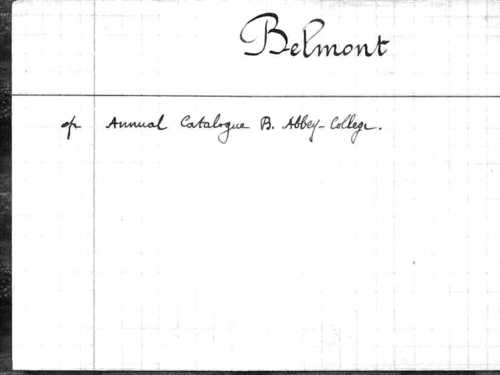 Belmont
op Annual Catalogue B. Abbey-College.